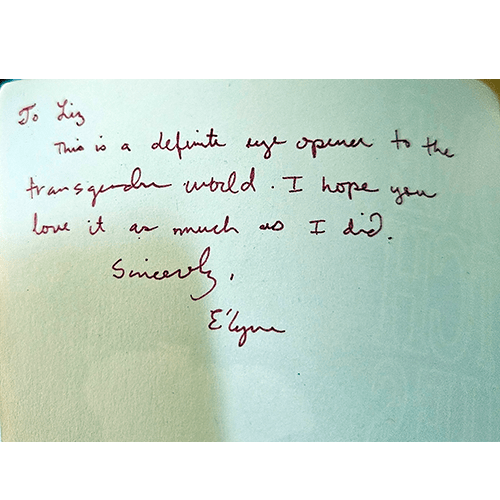 To Liz
This is a definite eye opener to the
transgender world. I hope you
love it as much as I did.
Sincerely,
E'lyne